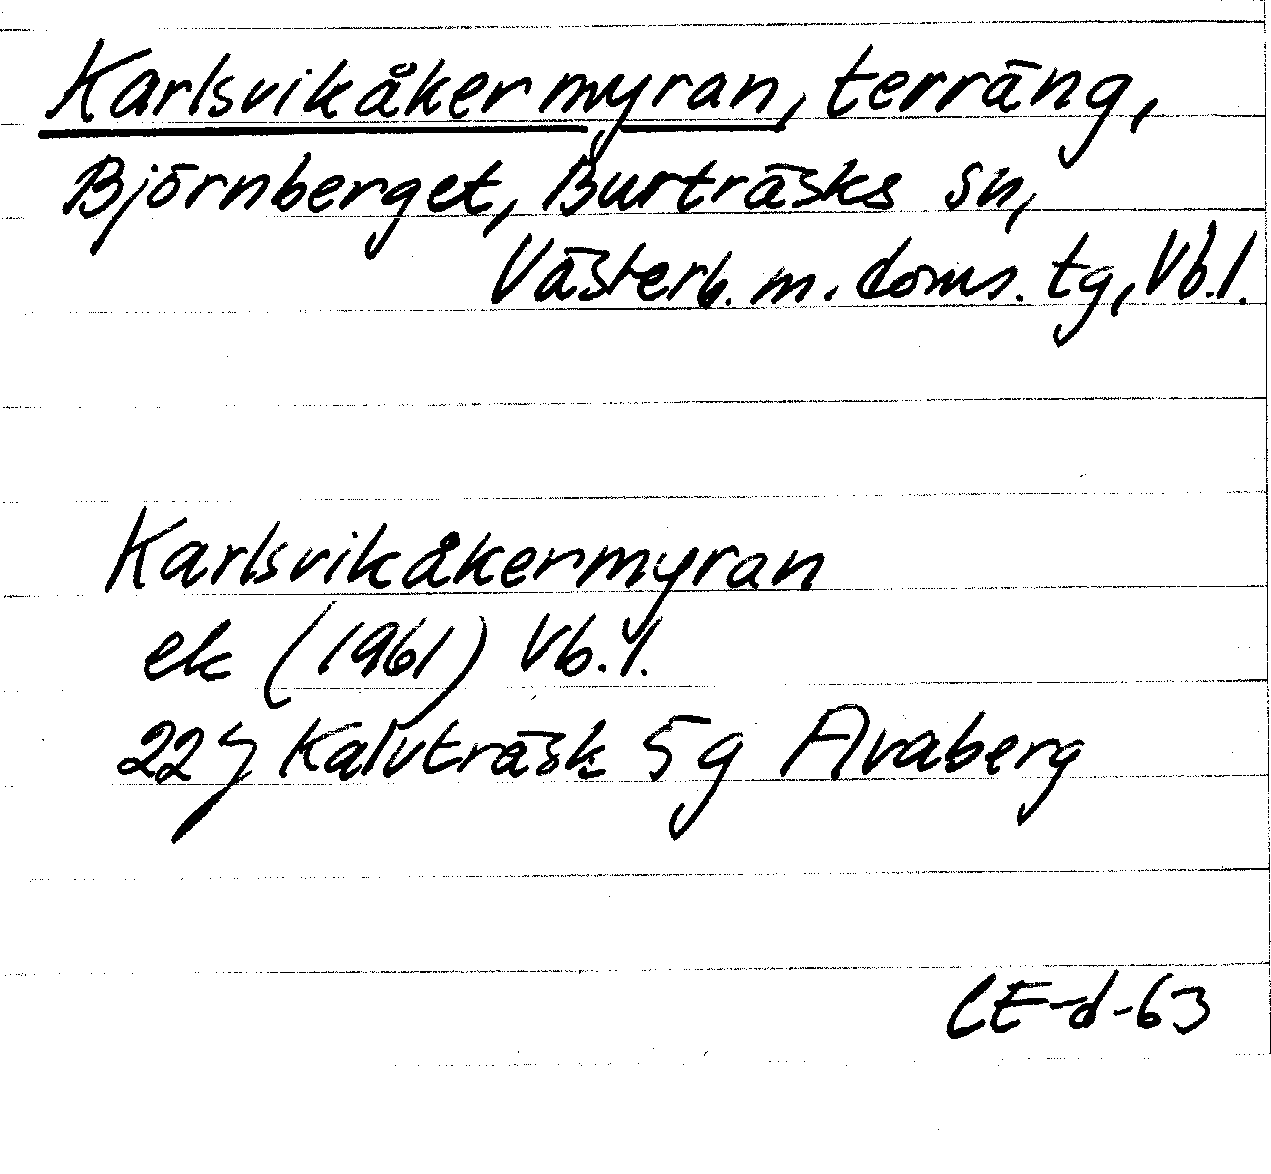 Karlsvikåkermyran, terräng,
Björnberget, Burträsks sn,
Västerb. m. doms. tg, Vb.l.
Karlsvikåkermyran
ek (1961) Vb.l.
22J Kalvträsk 5g Avaberg
CE-d-63